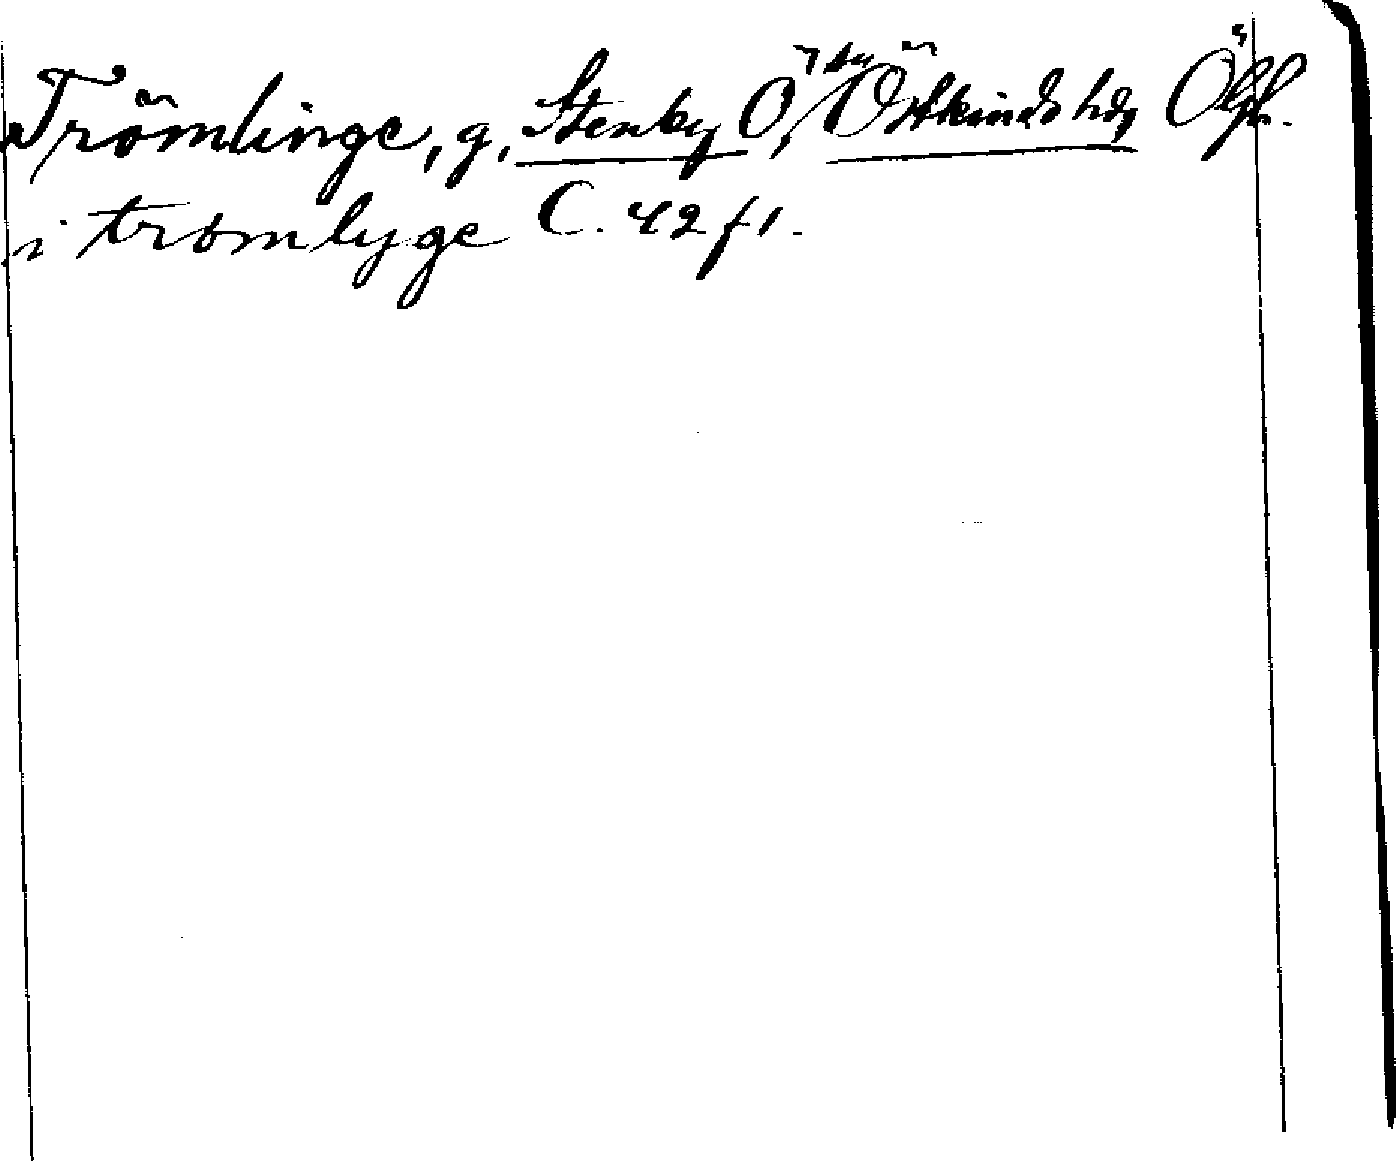 Trömlinge, g, Stenby Ö, Östkinds hd, Ögl.
i tromlyge C. 42 f 1.